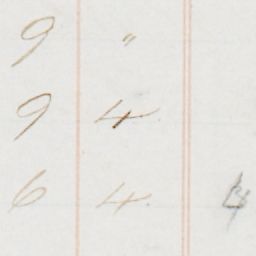 9 "
9 4
6 4 4